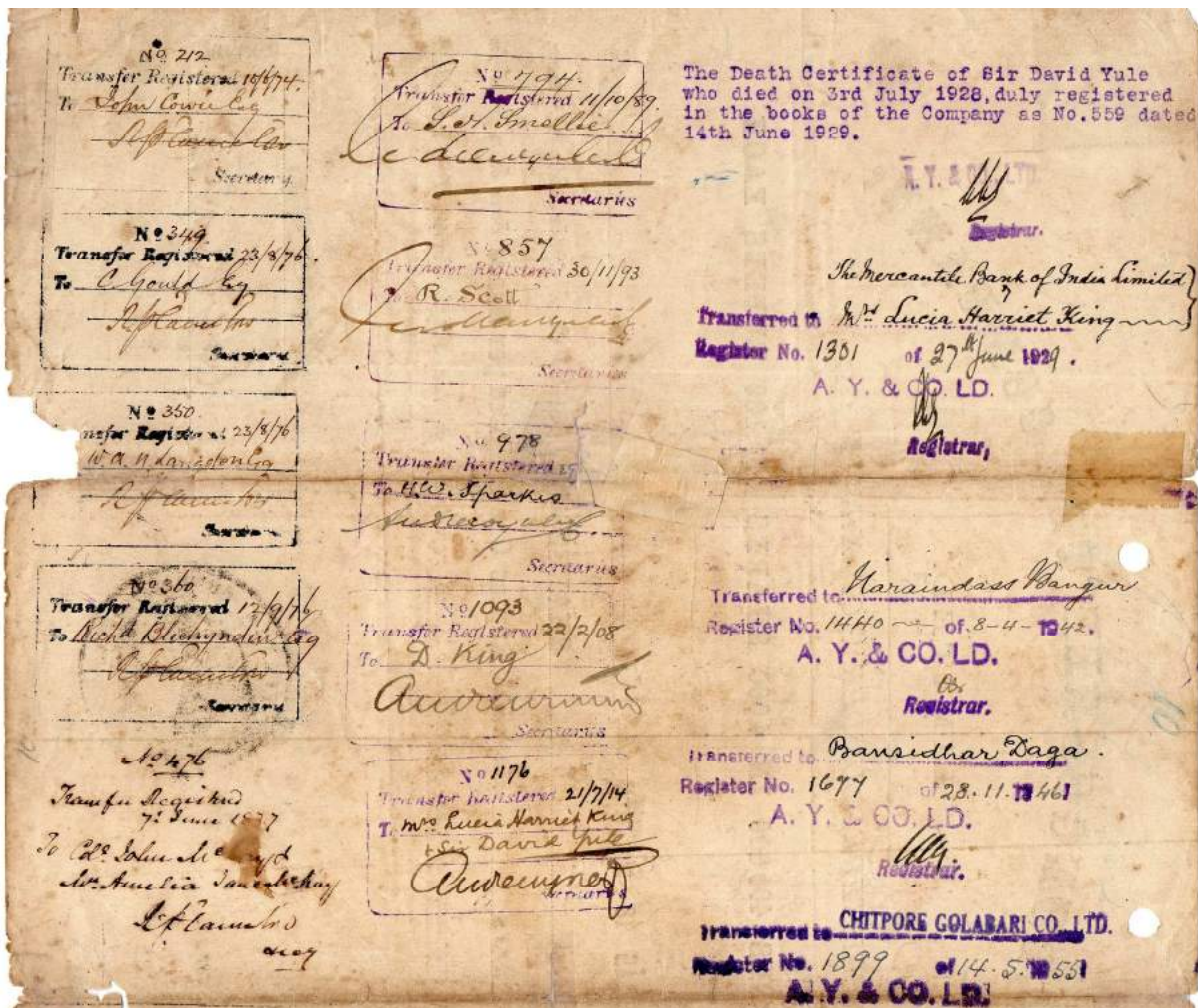 Nº 212
Transfer Registered 10/6/74.
To John Cowie Esq
Secretary
Nº 349
Transfer Registered 23/8/76
To C. Gould Esq
Nº 350
Transfer Registered 23/8/76
W. A. N. Langdon Esq
Nº 360
Transfer Registered 12/9/76
To Richd Blechynden Esq
Nº 476
Transfer Registered
7 June 1877
To Col John
Mrs Amelia
Secy
Nº 794.
Transfer Registered 11/10/89
To Smellie
Secretaries
Nº 857
Transfer Registered 30/11/93
To R. Scott
Secretaries
No 978
Transfer Registered
To H.W. Sparkes
Secretaries
Nº 1093
Transfer Registered 22/2/08
To D. King
Secretaries
Nº 1176
Transfer Registered 21/7/14
To Mrs Lucia Harriet King
& Sir David Yule
The Death Certificate of Sir David Yule
who died on 3rd July 1928,duly registered
in the books of the Company as No.559 dated
14th June 1929.
A. Y. & CO. LTD
Registrar.
The Mercantile Bank of India Limited
Transferred to Mrs Lucia Harriet King
Register No. 1301 of 27th June 1929.
A. Y. & CO. LD.
Registrar,
Transferred to Naraindass Bangur
Register No. 1440 of 8-4-1942.
A. Y. & CO. LD.
Registrar.
Transferred to Bansidhar Daga.
Register No. 1677 of 28.11.1946
A. Y. & CO. LD.
Registrar.
Transferred to CHITPORE GOLABARI CO. LTD.
Register No. 1899 of 14.5.1955
A. Y. & CO. LD.